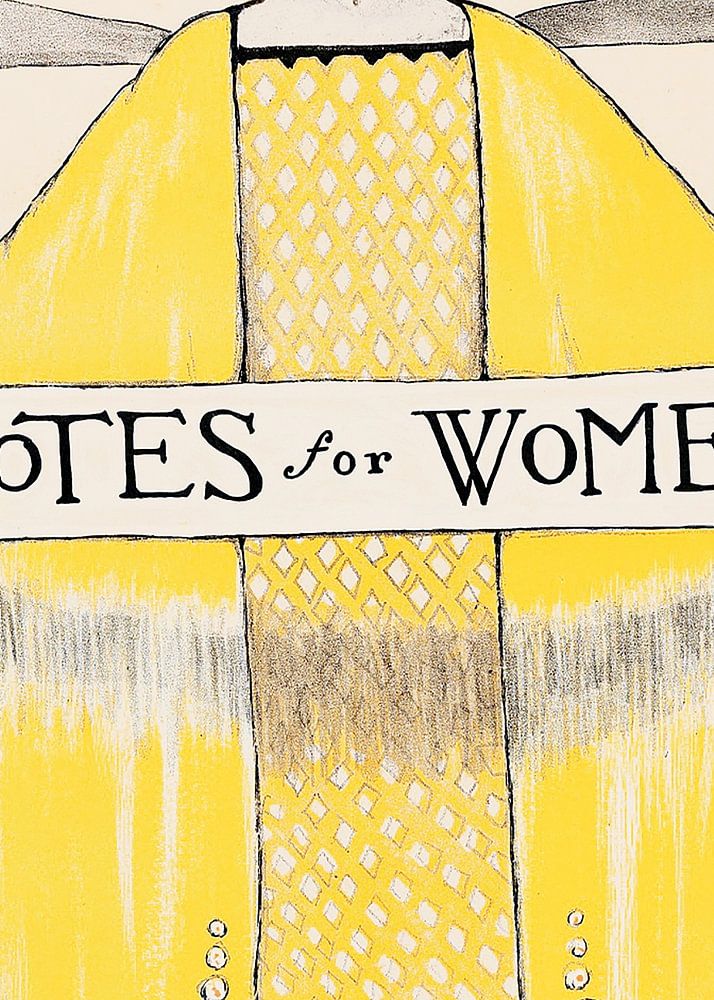 OTES for WOME